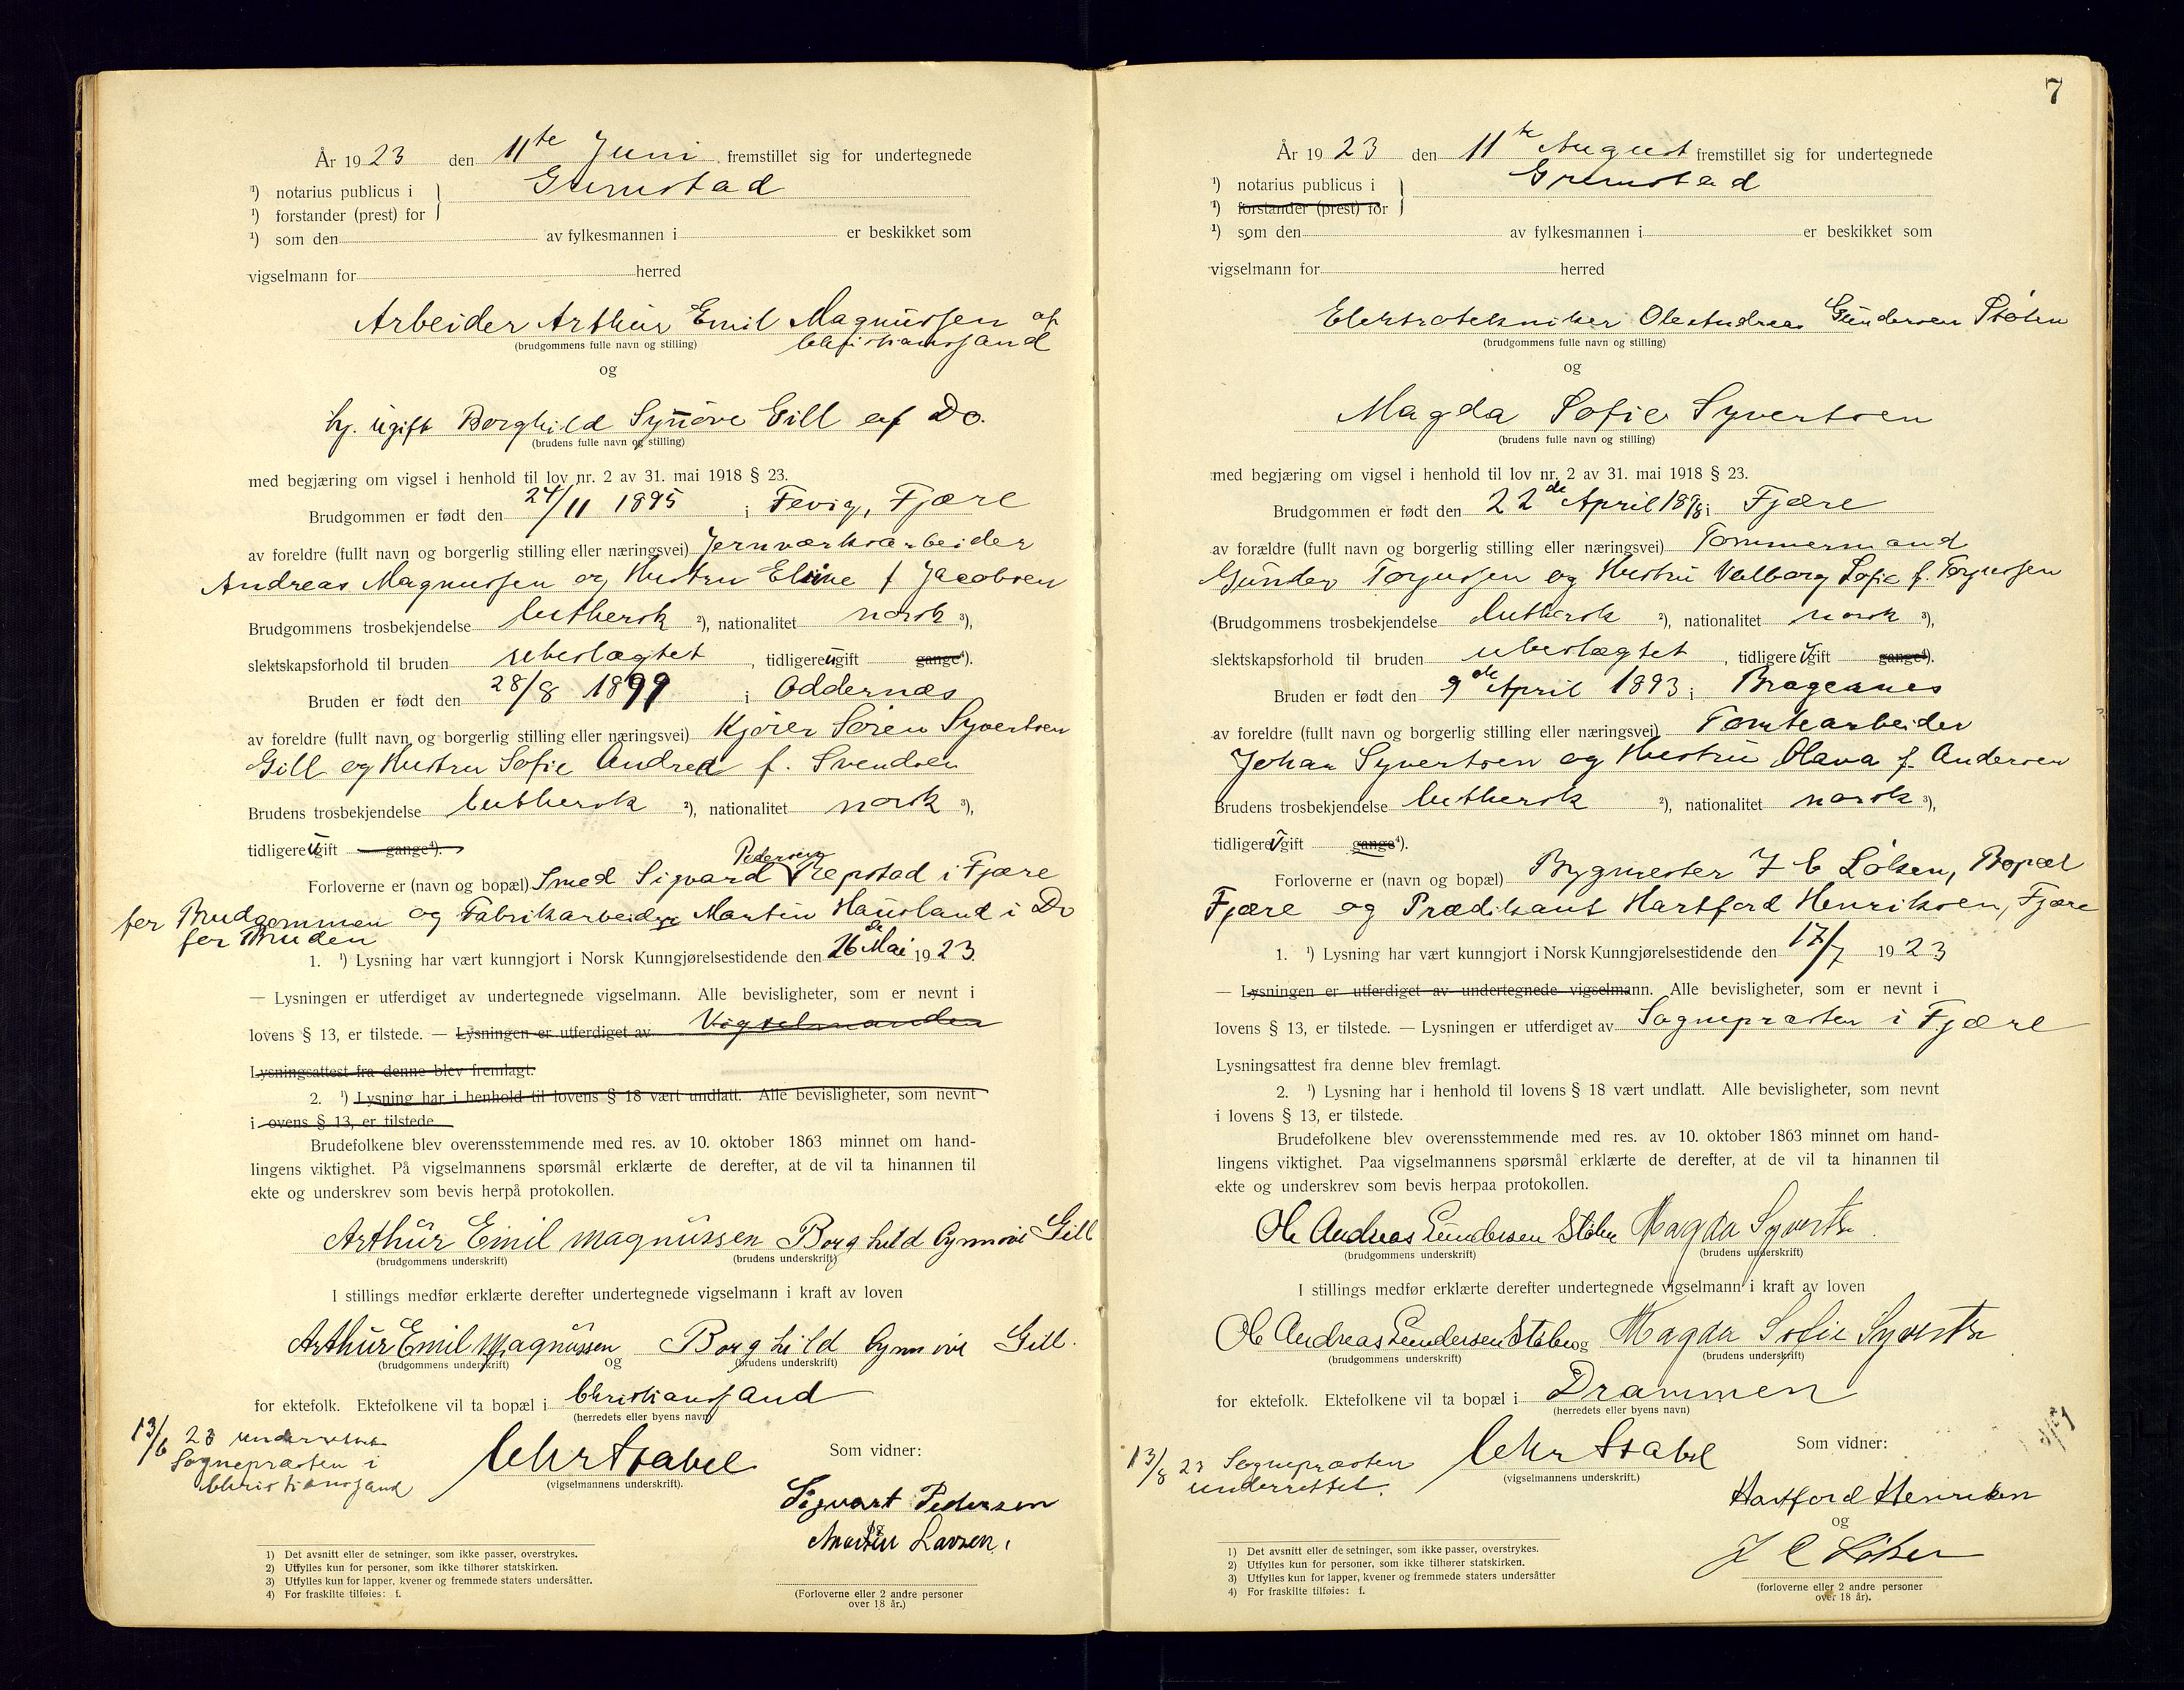 År 1923 den 11te Juni fremstillet sig for undertegnede
¹) notarius publicus i Grimstad
¹) forstander (prest) for
¹) som den av fylkesmannen i er beskikket som
vigselmann for herred
Arbeider Arthur Emil Magnussen af
Christianssand
(brudgommens fulle navn og stilling)
og
ugift Borghild Synøve Gill af Do.
(brudens fulle navn og stilling)
med begjæring om vigsel i henhold til lov nr. 2 av 31. mai 1918 § 23.
Brudgommen er født den 24/11 1895 i Fevig, Fjære
av foreldre (fullt navn og borgerlig stilling eller næringsvei) Jernværksarbeider
Andreas Magnussen og Hustru Eline f Jacobsen
Brudgommens trosbekjendelse luthersk ²), nationalitet norsk ³),
slektskapsforhold til bruden ubeslægtet, tidligere ugift gange⁴).
Bruden er født den 28/8 1899 i Oddernæs
av foreldre (fullt navn og borgerlig stilling eller næringsvei) Kjører Søren Syvertsen
Gill og Hustru Sofie Andrea f. Svendsen
Brudens trosbekjendelse luthersk ²), nationalitet norsk ³),
tidligere ugift gange⁴).
Pedersen
Forloverne er (navn og bopæl) Smed Sigvard Repstad i Fjære
for Brudgommen og Fabrikarbeider Martin Hausland i Do
for Bruden
1. ¹) Lysning har vært kunngjort i Norsk Kunngjørelsestidende den 26de Mai 1923
— Lysningen er utferdiget av undertegnede vigselmann. Alle bevisligheter, som er nevnt i
lovens § 13, er tilstede. — Lysningen er utferdiget av Vigselmanden
Lysningsattest fra denne blev fremlagt.
2. ¹) Lysning har i henhold til lovens § 18 vært undlatt. Alle bevisligheter, som nevnt
i ovens § 13, er tilstede
Brudefolkene blev overensstemmende med res. av 10. oktober 1863 minnet om hand-
lingens viktighet. På vigselmannens spørsmål erklærte de derefter, at de vil ta hinannen til
ekte og underskrev som bevis herpå protokollen.
Arthur Emil Magnussen Borghild Synnøve Gill
(brudgommens underskrift) (brudens underskrift)
I stillings medfør erklærte derefter undertegnede vigselmann i kraft av loven
Arthur Emil Magnussen og Borghild Synnøve Gill.
(brudgommens underskrift) (brudens underskrift)
for ektefolk. Ektefolkene vil ta bopæl i Christianssand
(herredets eller byens navn)
13/6 23 underrettet
Sognepræsten i
Christianssand
(vigselmannens underskrift).
Som vidner:
Sigvart Pedersen
Martin Larsen.
1) Det avsnitt eller de setninger, som ikke passer, overstrykes.
2) Utfylles kun for personer, som ikke tilhører statskirken.
3) Utfylles kun for lapper, kvener og fremmede staters undersåtter.
4) For fraskilte tilføies: f.
(Forloverne eller 2 andre personer
over 18 år.)
7
År 1923 den 11te August fremstillet sig for undertegnede
¹) notarius publicus i Grimstad
¹) forstander (prest) for
¹) som den av fylkesmannen i er beskikket som
vigselmann for herred
Elektrotekniker Ole Andreas Gundersen Stølen
(brudgommens fulle navn og stilling)
og
Magda Sofie Syvertsen
(brudens fulle navn og stilling)
med begjæring om vigsel i henhold til lov nr. 2 av 31. mai 1918 § 23.
Brudgommen er født den 22de April 1898 i Fjære
av forældre (fullt navn og borgerlig stilling eller næringsvei) Tømmermand
Gunder Torjussen og Hustru Valborg Sofie f. Torjussen
(Brudgommens trosbekjendelse luthersk ²), nationalitet norsk ³),
slektskapsforhold til bruden ubeslægtet, tidligere ugift gange⁴).
Bruden er født den 9de April 1893 i Bragernes
av foreldre (fullt navn og borgerlig stilling eller næringsvei) Tomtearbeider
Johan Syvertsen og Hustru Olava f. Andersen
Brudens trosbekjendelse luthersk ²), nationalitet norsk ³),
tidligere ugift gange⁴).
Forloverne er (navn og bopæl) Bygmester J C Løken, Bopæl
Fjære og Prædikant Hartford Henriksen, Fjære
1. ¹) Lysning har vært kunngjort i Norsk Kunngjørelsestidende den 17/7 1923
— Lysningen er utferdiget av undertegnede vigselmann. Alle bevisligheter, som er nevnt i
lovens § 13, er tilstede. — Lysningen er utferdiget av Sognepræsten i Fjære
Lysningsattest fra denne blev fremlagt.
2. ¹) Lysning har i henhold til lovens § 18 vært undlatt. Alle bevisligheter, som nevnt
i lovens § 13, er tilstede.
Brudefolkene blev overensstemmende med res. av 10. oktober 1863 minnet om hand-
lingens viktighet. Paa vigselmannens spørsmål erklærte de derefter, at de vil ta hinannen til
ekte og underskrev som bevis herpaa protokollen.
Ole Andreas Gundersen Stølen Magda Syvertsen
(brudgommens underskrift) (brudens underskrift)
I stillings medfør erklærte derefter undertegnede vigselmann i kraft av loven
Ole Andreas Gundersen Stølen og Magda Sofie Syvertsen
(brudgommens underskrift) (brudens underskrift)
for ektefolk. Ektefolkene vil ta bopæl i Drammen
(herredets eller byens navn)
13/8 23 Sognepræsten
underrettet.
(vigselmannens underskrift.)
Som vidner:
Hartford Henriksen
og
J C Løken
1) Det avsnitt eller de setninger, som ikke passer, overstrykes.
2) Utfylles kun for personer, som ikke tilhører statskirken.
3) Utfylles kun for lapper, kvener og fremmede staters undersåtter
4) For fraskilte tilføies: f.
(forloverne eller 2 andre personer
over 18 år).